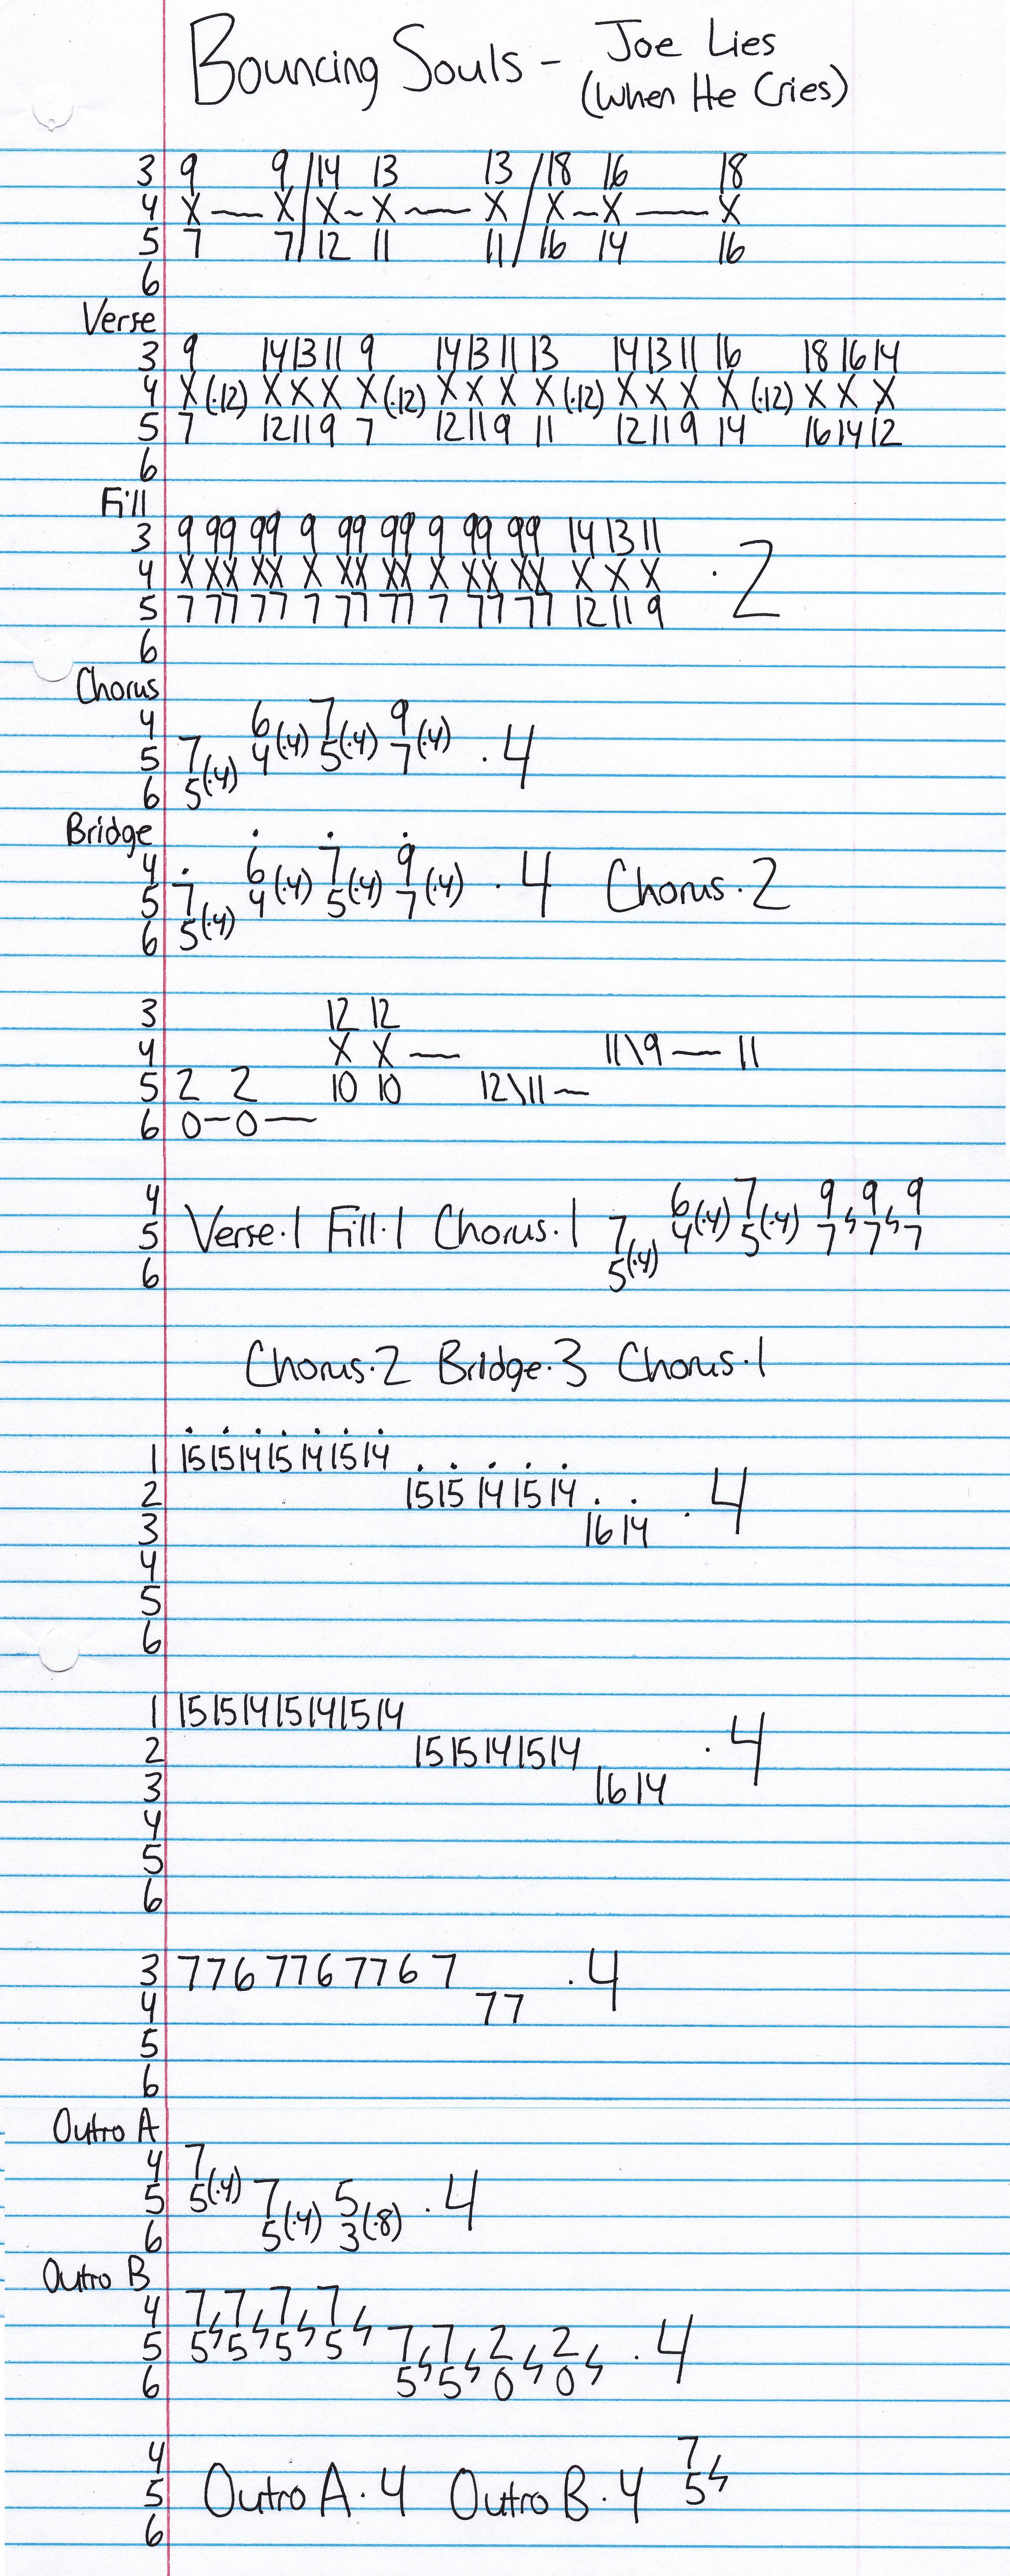 Bouncing Souls - Joe Lies
(When He Cries)
3 9 9/14 13 13/18 16 18
4 X — X/X~X — X/X~X — X
5 7 7/12 11 11/16 14 16
6
Verse
3 9 14 13 11 9 14 13 11 13 14 13 11 16 18 16 14
4 X (·12) X X X X (·12) X X X X (·12) X X X X (·12) X X X
5 7 12 11 9 7 12 11 9 11 12 11 9 14 16 14 12
6
Fill
3 9 99 99 9 99 99 9 99 99 14 13 11
4 X XX XX X XX XX X XX XX X X X · 2
5 7 77 77 7 77 77 7 77 77 12 11 9
6
Chorus
4 6 7 9
5 7 4(·4) 5(·4) 7(·4) · 4
6 5(·4)
Bridge
4 6 7 9
5 7 4(·4) 5(·4) 7(·4) · 4 Chorus·2
6 5(·4)
3 12 12
4 X X — 11\9 — 11
5 2 2 10 10 12\11 ~
6 0–0—
4 6 7 9 9 9
5 Verse·1 Fill·1 Chorus·1 7 4(·4) 5(·4) 7 7 7
6 5(·4)
Chorus·2 Bridge·3 Chorus·1
1 15 15 14 15 14 15 14
2 15 15 14 15 14 · 4
3 16 14
4
5
6
1 15 15 14 15 14 15 14
2 15 15 14 15 14 · 4
3 16 14
4
5
6
3 7 7 6 7 7 6 7 7 6 7 · 4
4 7 7
5
6
Outro A
4 7
5 5(·4) 7 5 · 4
6 5(·4) 3(·8)
Outro B
4 7 7 7 7
5 5 5 5 5 7 7 2 2 · 4
6 5 5 0 0
4 7
5 Outro A·4 Outro B·4 5
6